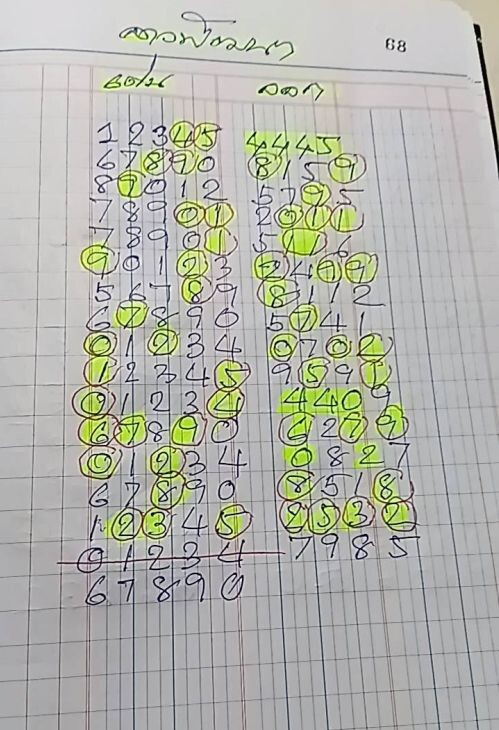 68
เด่น ออก
1 2 3 4 5 4 4 4 5
6 7 8 9 0 8 1 5 9
8 9 0 1 2 5 7 9 5
7 8 9 0 1 2 0 1 1
7 8 9 0 1 5 1 1 6
9 0 1 2 3 2 4 9 9
5 6 7 8 9 8 1 1 2
6 7 8 9 0 5 7 4 1
0 1 2 3 4 0 7 0 2
1 2 3 4 5 9 5 9 1
0 1 2 3 4 4 4 0 9
6 7 8 9 0 6 2 7 9
0 1 2 3 4 0 8 2 7
6 7 8 9 0 8 5 1 8
1 2 3 4 5 2 5 3 2
0 1 2 3 4 7 9 8 5
6 7 8 9 0